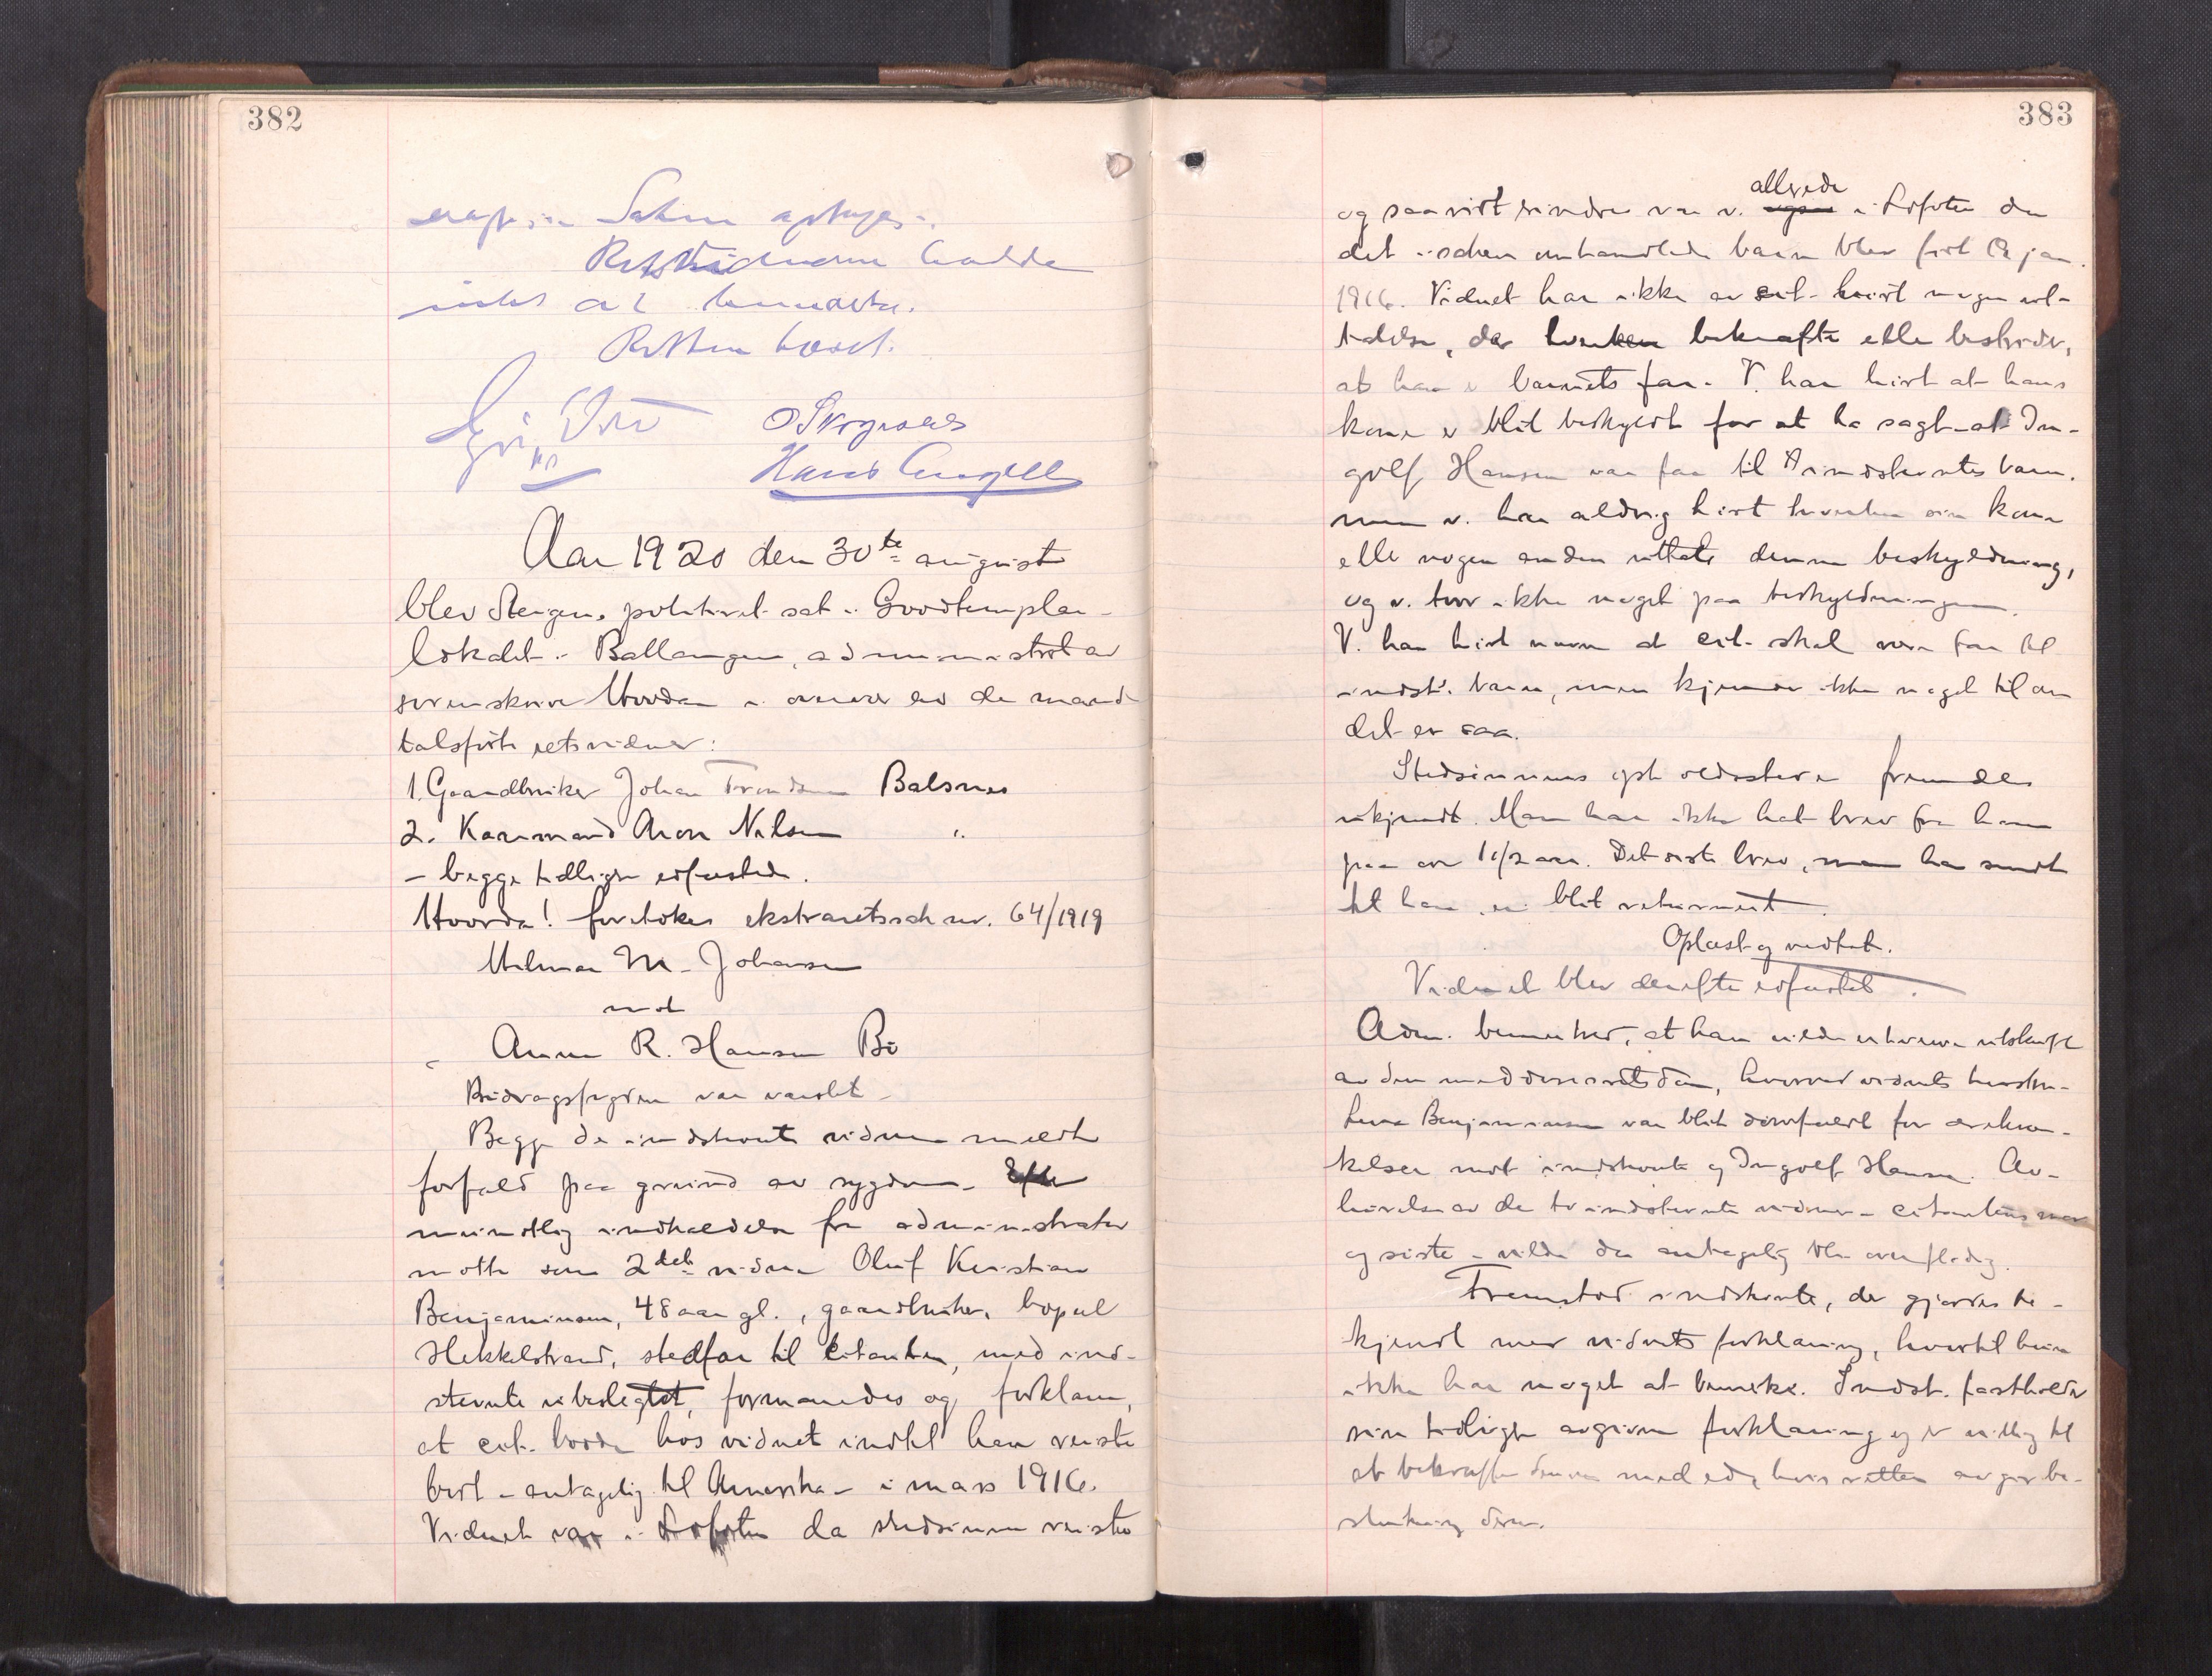 382
Saken optages.
Retsvidnerne hadde
intet at bemerke.
Retten hævet.
Hans Angell
Aar 1920 den 30te august
blev Steigen politiret sat i Goodtemplar-
lokalet i Ballangen, administrert av
sorenskriver Hvorda i overvær av de mand-
talsførte retsvidner:
1. Gaardbruker Johan Trondsen Balsnes
2. Karimand Aron Nilsen "
- begge tidligere edfæstede.
Hvorda! foretokes ekstraretssak nr. 64/1919
Hilmar M. Johansen
mot
Anna R. Hansen Bø
Bidragsfogden var varslet -
Begge de indstevnte vidner meldte
forfald paa grund av sygdom. Efter
mundtlig indkaldelse fra administrator
møtte som 2det vidne Oluf Kristian
Benjaminsen, 48 aar gl., gaardbruker, bopæl
Hekkelstrand, stedfar til citanten, med ind-
stevnte ubeslegtet, formanedes og forklarer,
at cit. bodde hos vidnet indtil han reiste
bort - antagelig til Amerika - i mars 1916.
Vidnet var i Lofoten da stedsønnen reiste
383
allerede
og saavidt erindres var v. ogsaa i Lofoten da
det i saken omhandlede barn blev født 12 jan.
1916. Vidnet har ikke av cit. hørt nogen ut-
talelse, der hverken bekræfter eller bestrider,
at han er barnets far. V. har hørt at hans
kone er blit beskyldt for at ha sagt at In-
golf Hansen var far til indstevntes barn.
men v. har aldrig hørt hverken sin kone
eller nogen anden uttale denne beskyldning,
og v. tror ikke noget paa beskyldningen.
V. har hørt nævne at cit. skal være far til
indst's barn, men kjender ikke noget til om
det er saa.
Stedsønnens opholdssted er fremdeles
ukjendt. Man har ikke hat brev fra ham
paa over 1 1/2 aar. Det siste brev, man har sendt
til ham, er blit returnert.
Oplæst og vedtat.
Vidnet blev derefter edfæstet.
Adm. bemerket, at han vilde erhverve utskrift
av den meddomsretsdom, hvorved vidnets hustru
Lina Benjaminsen var blit domfældt for ærekræn-
kelser mot indstevnte og Ingolf Hansen. Av-
hørelse av de to indstevnte vidner - citantens mor
og søster - vilde da antagelig bli overflødig.
Fremstod indstevnte, der gjordes be-
kjendt med vidnets forklaring, hvortil hun
ikke har noget at bemerke. Indst. fastholder
sin tidligere avgivne forklaring og er villig til
at bekræfte denne med ed, hvis retten avgir be-
slutning derom.